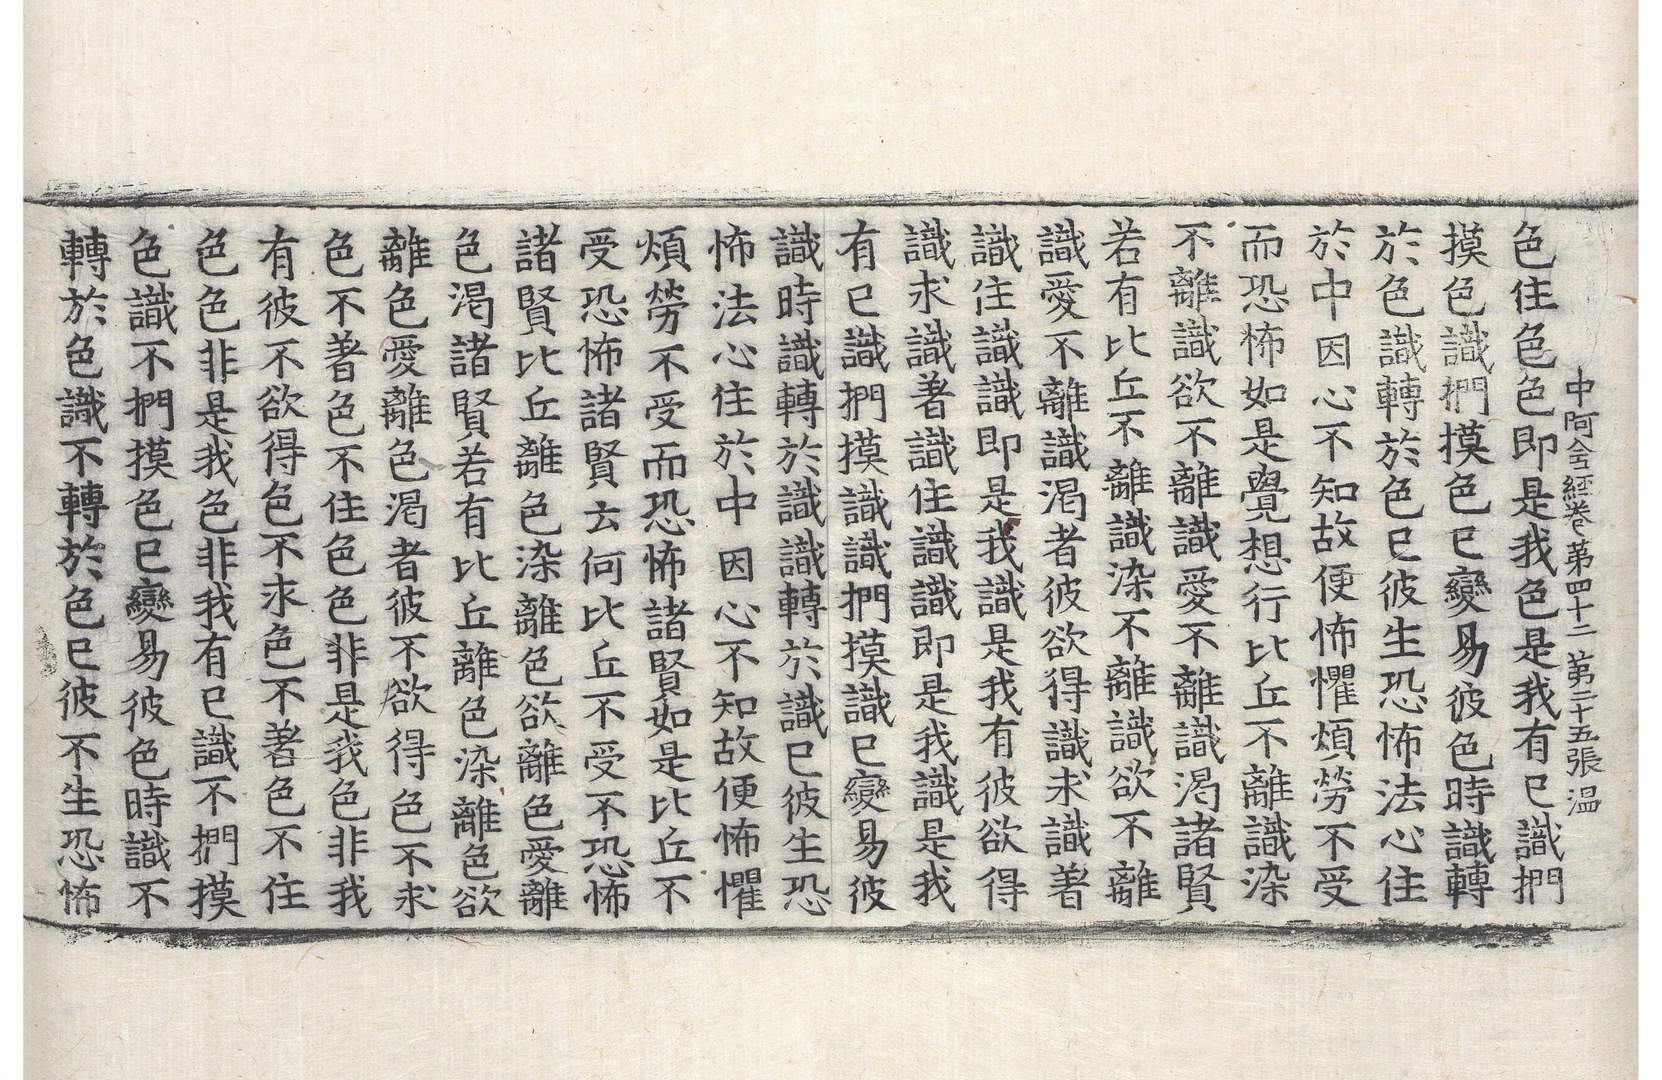 中阿含經卷第四十二 第二十五張 温
色住色色即是我色是我有已識捫
摸色識捫摸色已變易彼色時識轉
於色識轉於色已彼生恐怖法心住
於中因心不知故便怖懼煩勞不受
而恐怖如是覺想行比丘不離識染
不離識欲不離識愛不離識渴諸賢
若有比丘不離識染不離識欲不離
識愛不離識渴者彼欲得識求識著
識住識識即是我識是我有彼欲得
識求識著識住識識即是我識是我
有已識捫摸識識捫摸識已變易彼
識時識轉於識識轉於識已彼生恐
怖法心住於中因心不知故便怖懼
煩勞不受而恐怖諸賢如是比丘不
受恐怖諸賢云何比丘不受不恐怖
諸賢比丘離色染離色欲離色愛離
色渴諸賢若有比丘離色染離色欲
離色愛離色渴者彼不欲得色不求
色不著色不住色色非是我色非我
有彼不欲得色不求色不著色不住
色色非是我色非我有已識不捫摸
色識不捫摸色已變易彼色時識不
轉於色識不轉於色已彼不生恐怖